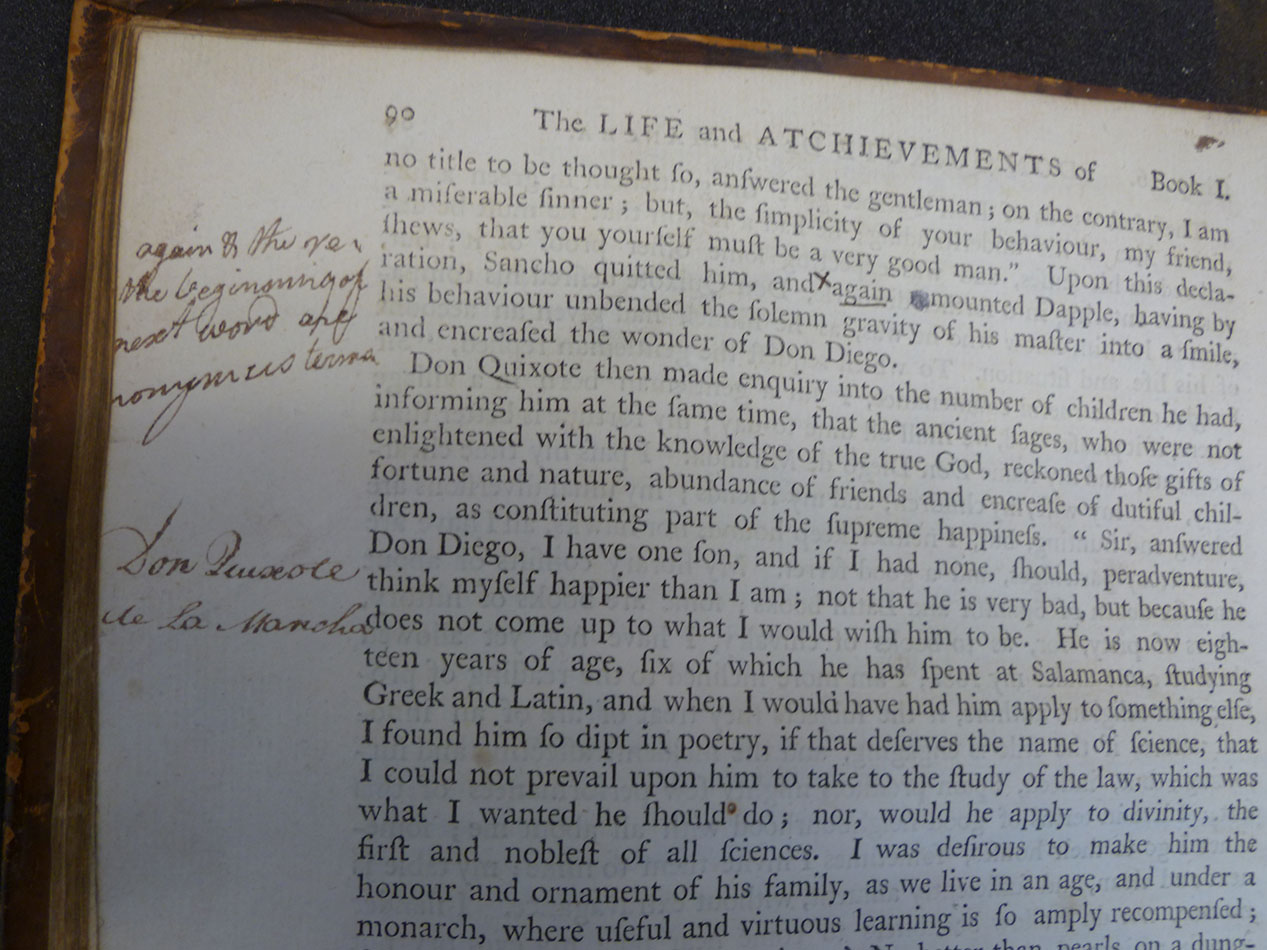 90 The LIFE and ATCHIEVEMENTS of Book I.
no title to be thought ſo, anſwered the gentleman; on the contrary, I am
a miſerable ſinner; but, the ſimplicity of your behaviour, my friend,
ſhews, that you yourſelf muſt be a very good man." Upon this decla-
ration, Sancho quitted him, and again mounted Dapple, having by
his behaviour unbended the ſolemn gravity of his maſter into a ſmile,
and encreaſed the wonder of Don Diego.
Don Quixote then made enquiry into the number of children he had,
informing him at the ſame time, that the ancient ſages, who were not
enlightened with the knowledge of the true God, reckoned thoſe gifts of
fortune and nature, abundance of friends and encreaſe of dutiful chil-
dren, as conſtituting part of the ſupreme happineſs. " Sir, anſwered
Don Diego, I have one ſon, and if I had none, ſhould, peradventure,
think myſelf happier than I am; not that he is very bad, but becauſe he
does not come up to what I would wiſh him to be. He is now eigh-
teen years of age, ſix of which he has ſpent at Salamanca, ſtudying
Greek and Latin, and when I would have had him apply to ſomething elſe,
I found him ſo dipt in poetry, if that deſerves the name of ſcience, that
I could not prevail upon him to take to the ſtudy of the law, which was
what I wanted he ſhould do; nor, would he apply to divinity, the
firſt and nobleſt of all ſciences. I was deſirous to make him the
honour and ornament of his family, as we live in an age, and under a
monarch, where uſeful and virtuous learning is ſo amply recompenſed;
than pearls on a dung-
again & the re
the beginning of
next word are
nonymous terms
Don Quixote
de La Mancha